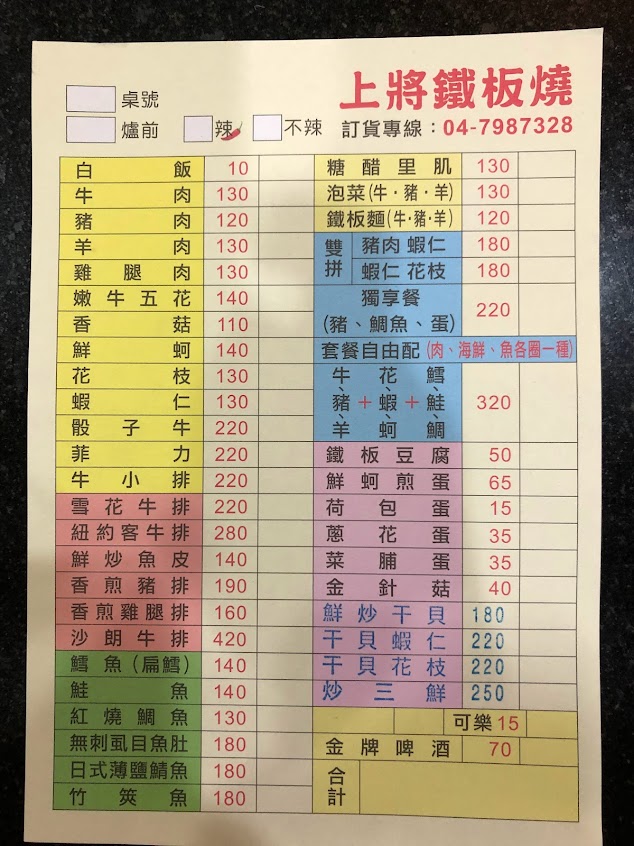 上將鐵板燒
桌號
爐前 辣 不辣 訂貨專線：04-7987328
白飯 10
牛肉 130
豬肉 120
羊肉 130
雞腿肉 130
嫩牛五花 140
香菇 110
鮮蚵 140
花枝 130
蝦仁 130
骰子牛 220
菲力 220
牛小排 220
雪花牛排 220
紐約客牛排 280
鮮炒魚皮 140
香煎豬排 190
香煎雞腿排 160
沙朗牛排 420
鱈魚(扁鱈) 140
鮭魚 140
紅燒鯛魚 130
無刺虱目魚肚 180
日式薄鹽鯖魚 180
竹筴魚 180
糖醋里肌 130
泡菜(牛・豬・羊) 130
鐵板麵(牛・豬・羊) 120
雙拼 豬肉 蝦仁 180
蝦仁 花枝 180
獨享餐
(豬、鯛魚、蛋) 220
套餐自由配(肉、海鮮、魚各圈一種)
牛、豬、羊+花、蝦、蚵+鱈、鮭、鯛 320
鐵板豆腐 50
鮮蚵煎蛋 65
荷包蛋 15
蔥花蛋 35
菜脯蛋 35
金針菇 40
鮮炒干貝 180
干貝蝦仁 220
干貝花枝 220
炒三鮮 250
可樂 15
金牌啤酒 70
合計